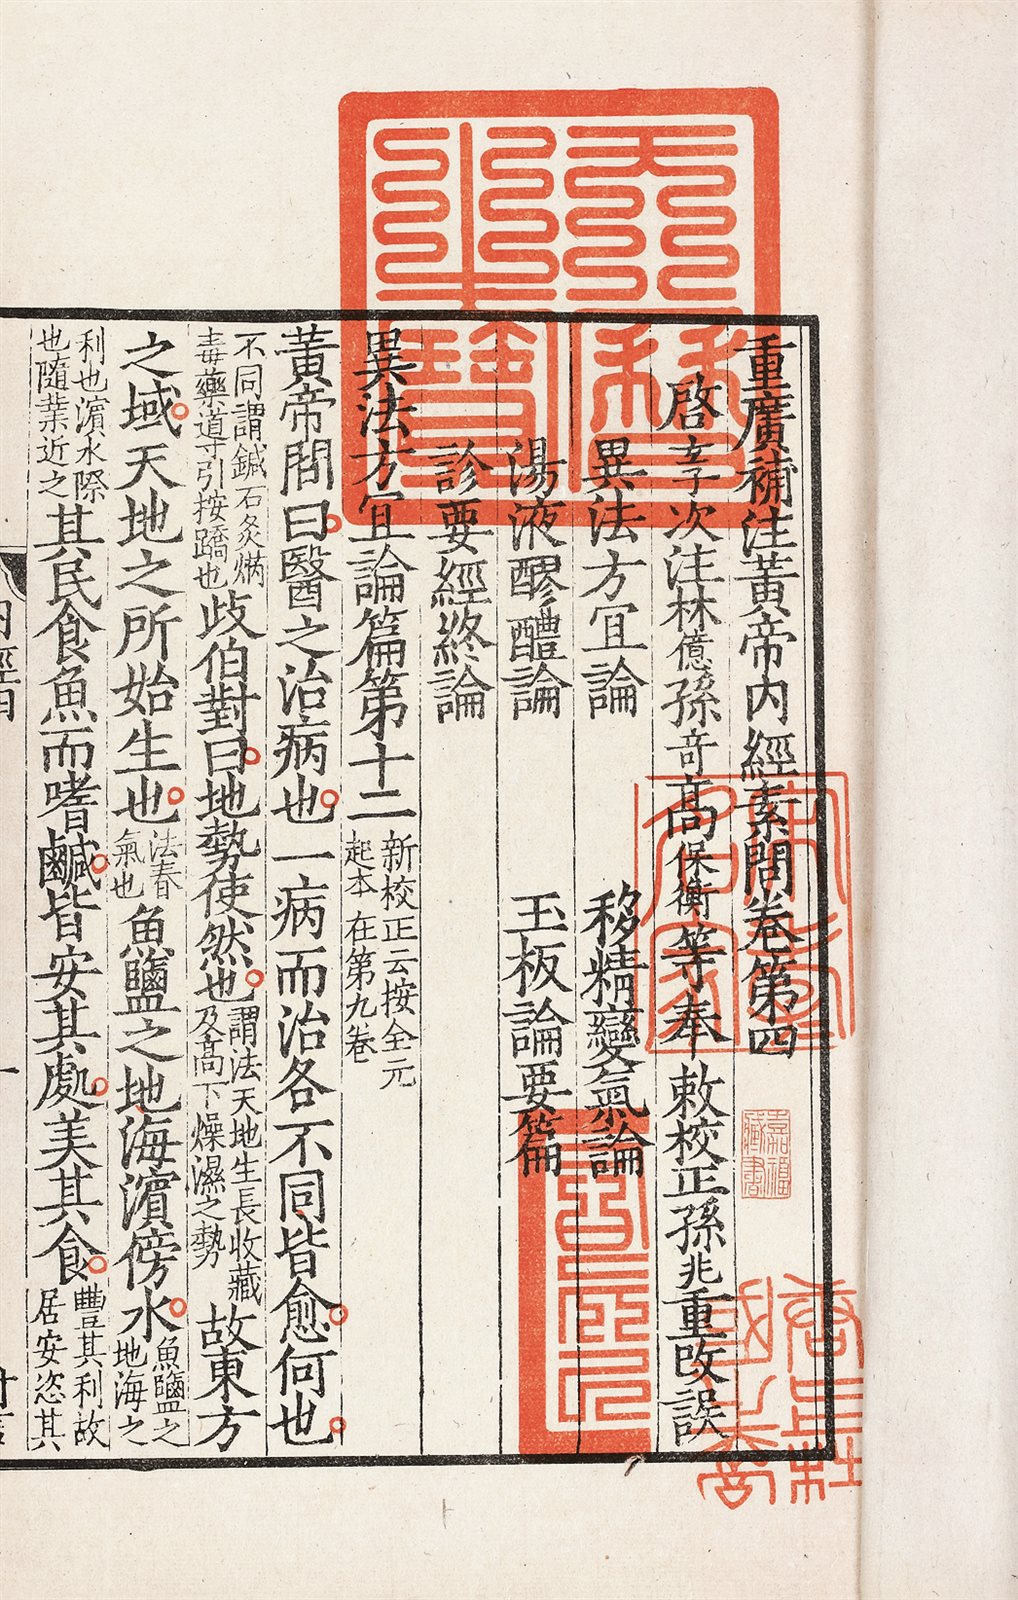 重廣補注黃帝内經素問卷第四
啓玄子次注林億孫奇高保衡等奉敕校正孫兆重改誤
異法方宜論 移精變氣論
湯液醪醴論 玉板論要篇
診要經終論
異法方宜論篇第十二 新校正云按全元起本在第九卷
黃帝問曰醫之治病也一病而治各不同皆愈何也
不同謂鍼石灸焫毒藥導引按蹻也歧伯對曰地勢使然也謂法天地生長收藏及高下燥濕之勢故東方
之域天地之所始生也法春氣也魚鹽之地海濱傍水魚鹽之地海之
利也濱水際也隨業近之其民食魚而嗜鹹皆安其處美其食豐其利故居安恣其
嘉福藏書